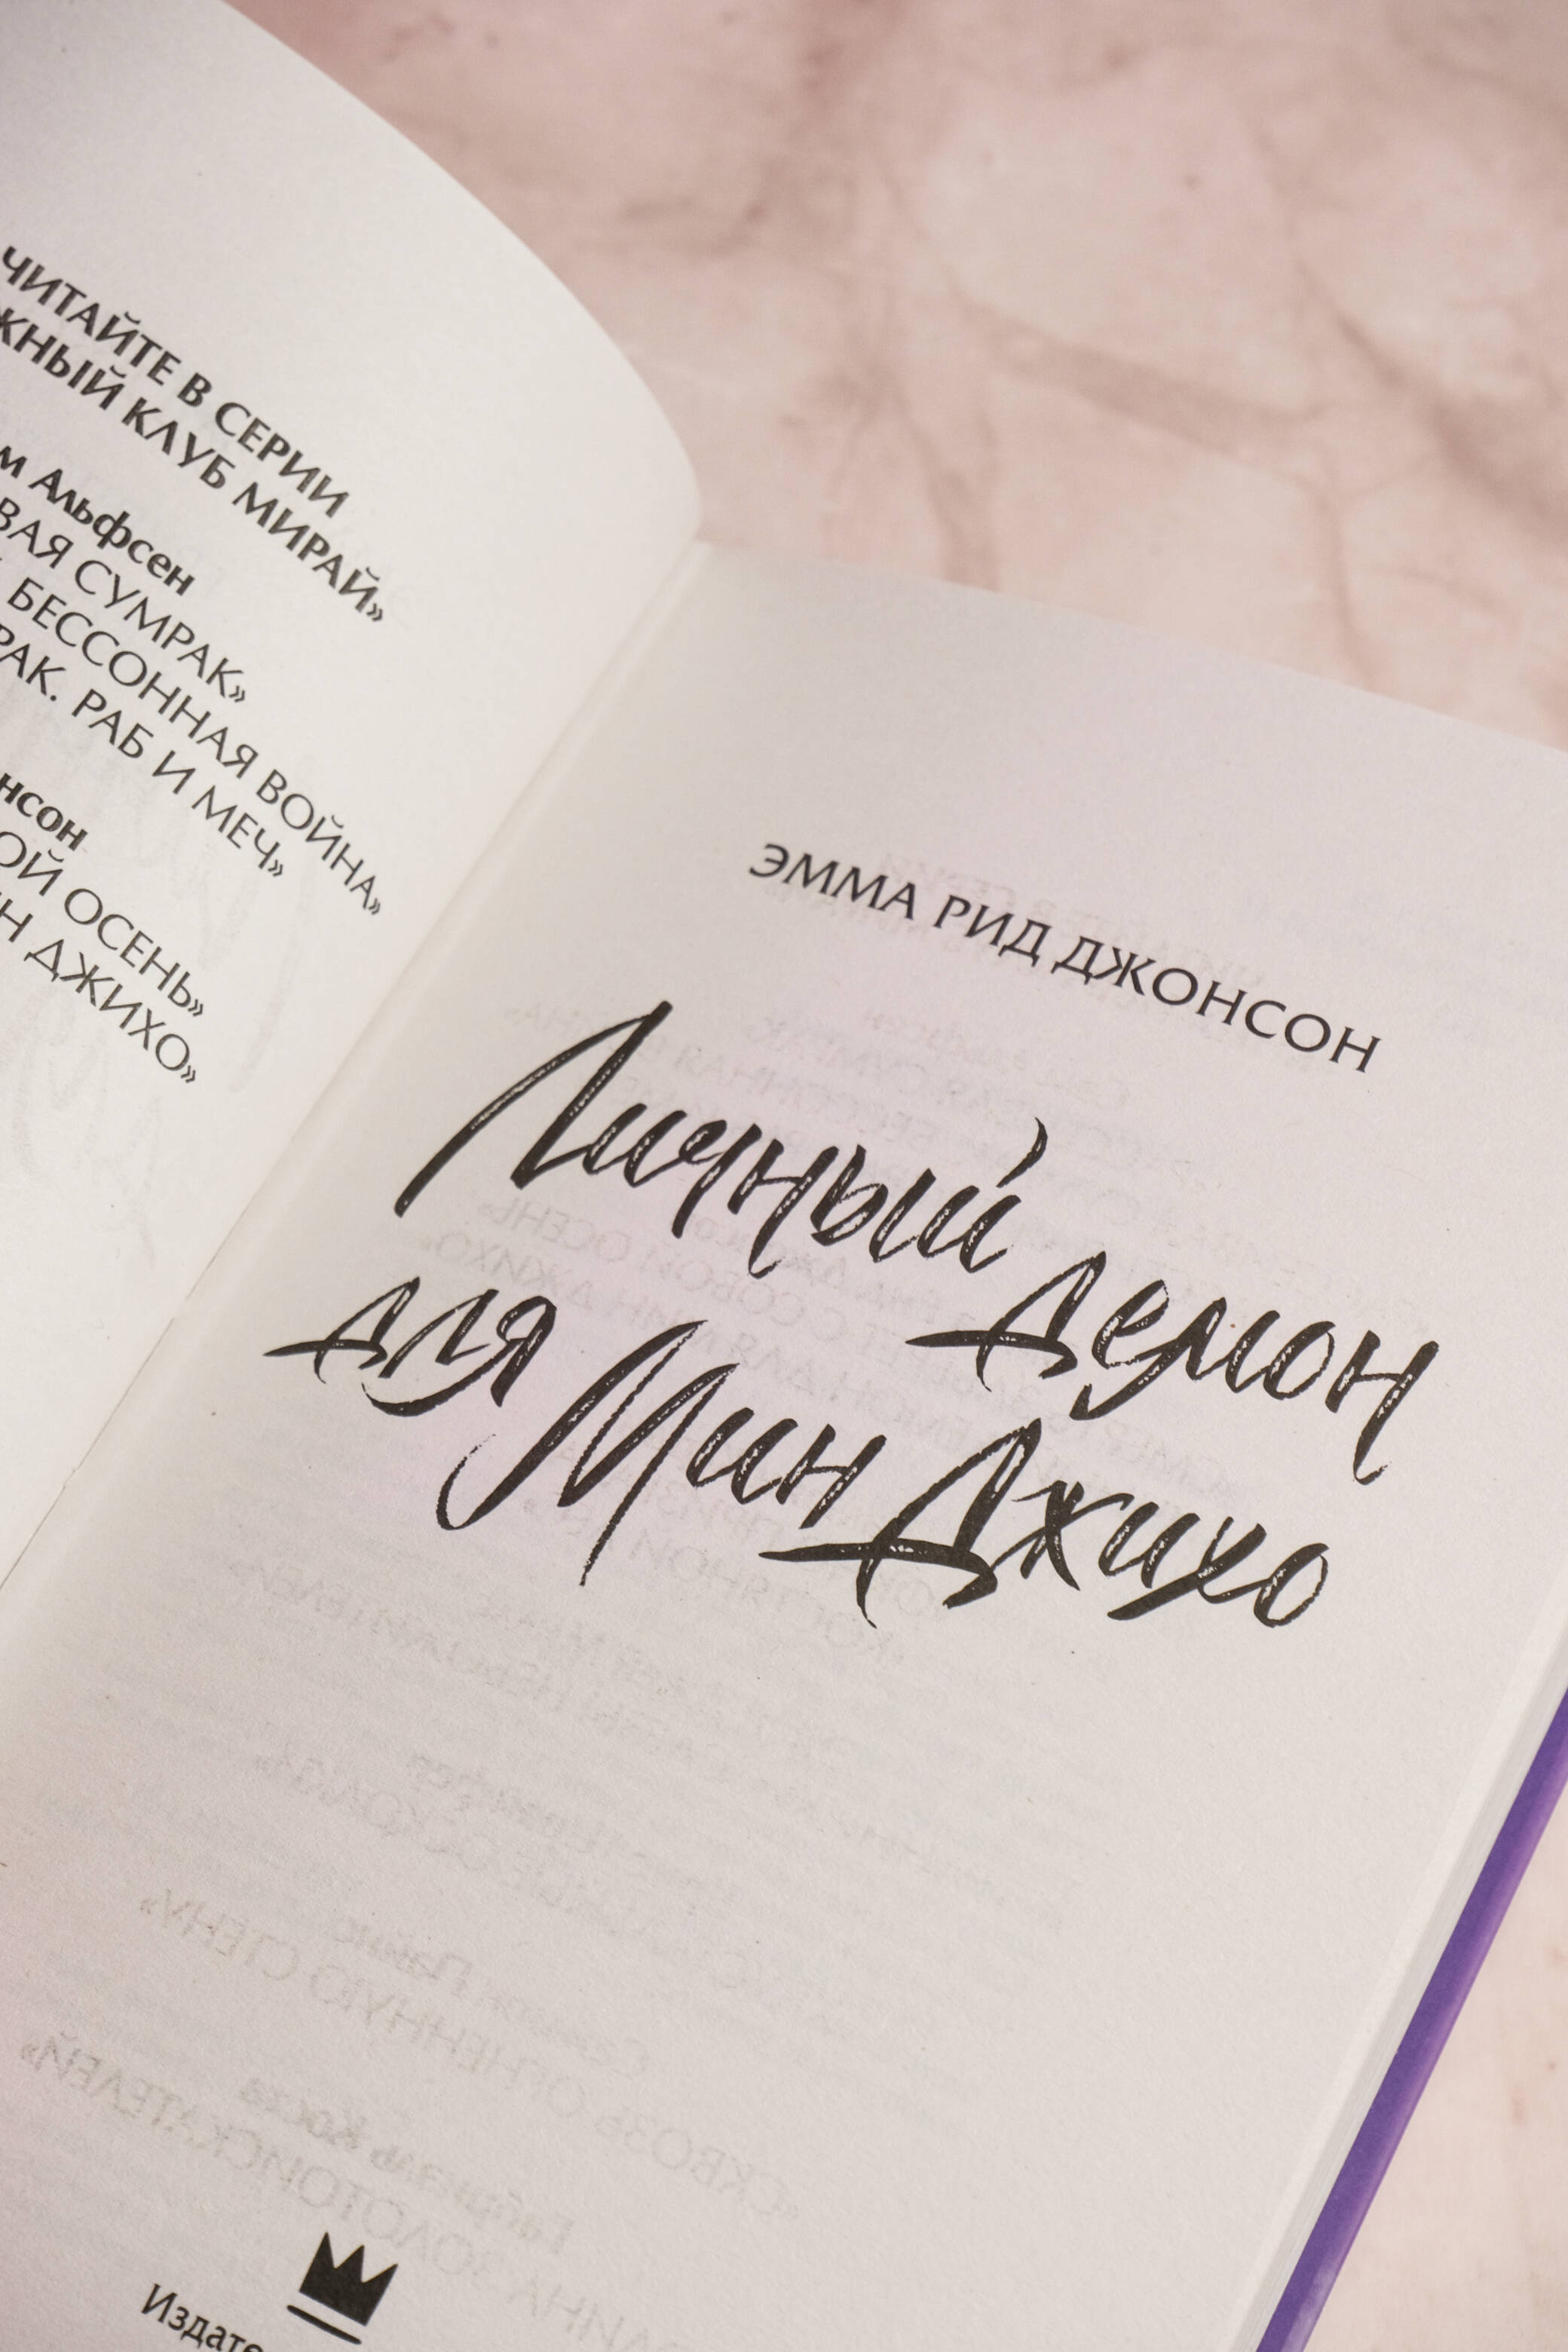 ЧИТАЙТЕ В СЕРИИ
КЛУБ МИРАЙ»
Альфсен
СУМРАК»
БЕССОННАЯ ВОЙНА»
РАБ И МЕЧ»
ОСЕНЬ»
ДЖИХО»
ЭММА РИД ДЖОНСОН
Личный демон
для Мин Джихо